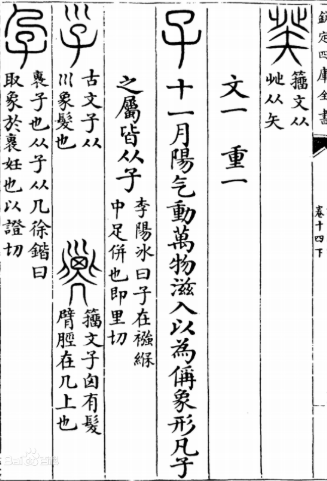 欽定四庫全書
卷十四下
籀文从
㱐从矢
文一　重一
子
十一月陽气動萬物滋入以為偁象形凡子
之屬皆从子
李陽冰曰子在襁緥
中足併也即里切
古文子从
巛象髮也
籀文子囟有髮
臂脛在几上也
裹子也从子从几徐鍇曰
取象於裹妊也以證切